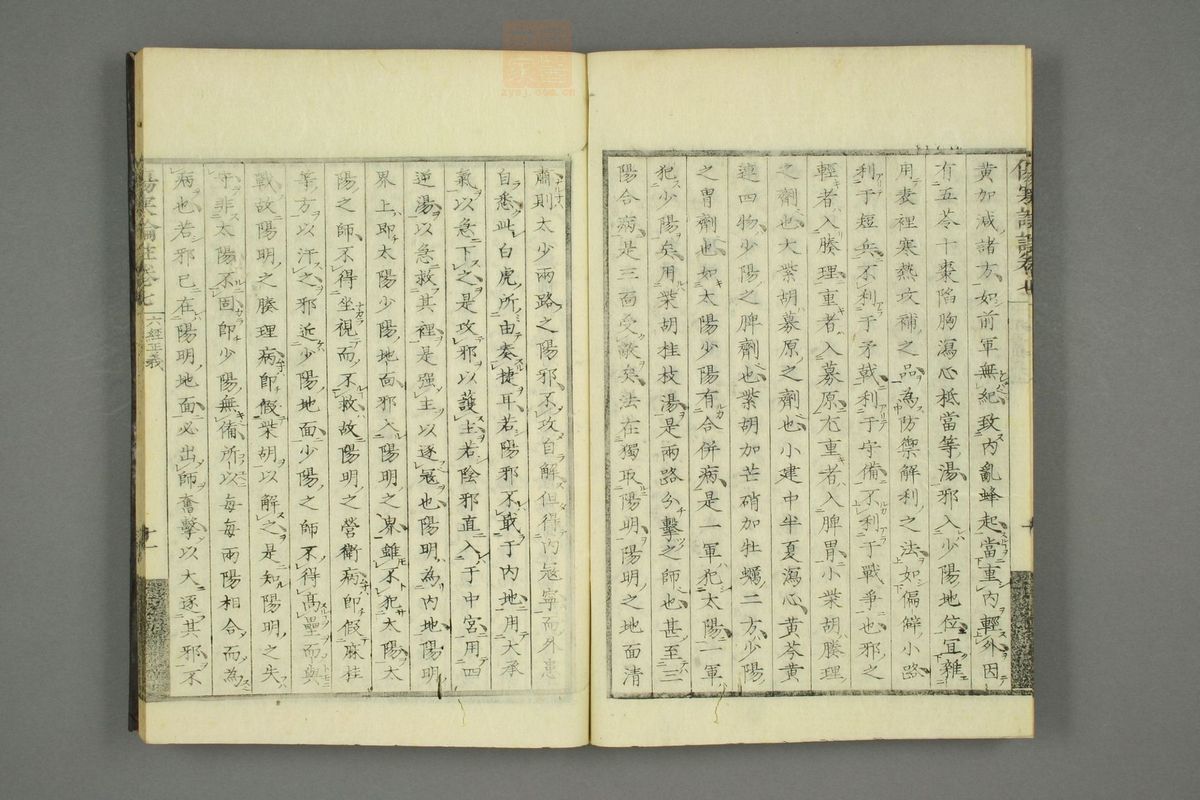 黄加減諸方如前軍無紀致内亂蜂起當重内輕外因
有五苓十棗陷胸瀉心柢當等湯邪入少陽地位宜雜
用表裡寒熱攻補之品為防禦解利之法如偏僻小路
利于短兵不利于矛戟利于守備不利于戰爭也邪之
輕者入腠理重者入募原尤重者入脾胃小柴胡腠理
之劑也大柴胡募原之劑也小建中半夏瀉心黄芩黄
連四物少陽之脾劑也柴胡加芒硝加牡蠣二方少陽
之胃劑也如太陽少陽有合併病是一軍犯太陽一軍
犯少陽矣用柴胡桂枝湯是兩路分擊之師也甚至三
陽合病是三面受敵矣法在獨取陽明陽明之地面清
肅則太少兩路之陽邪不攻自解但得内寇寧而外患
自悉此白虎所由奏捷耳若陽邪不戢于内地用大承
氣以急下之是攻邪以護主若陰邪直入于中宮用四
逆湯以急救其裡是强主以逐寇也陽明為内地陽明
界上即太陽少陽地面邪入陽明之界雖不犯太陽太
陽之師不得坐視而不救故陽明之營衛病即假麻桂
等方以汗之邪近少陽地面少陽之師不得高壘而與
戰故陽明之腠理病即假柴胡以解之是知陽明之失
守非太陽不固即少陽無備所以每每兩陽相合而為
病也若邪已在陽明地面必出師奮擊以大逐其邪不
六經正義
十一